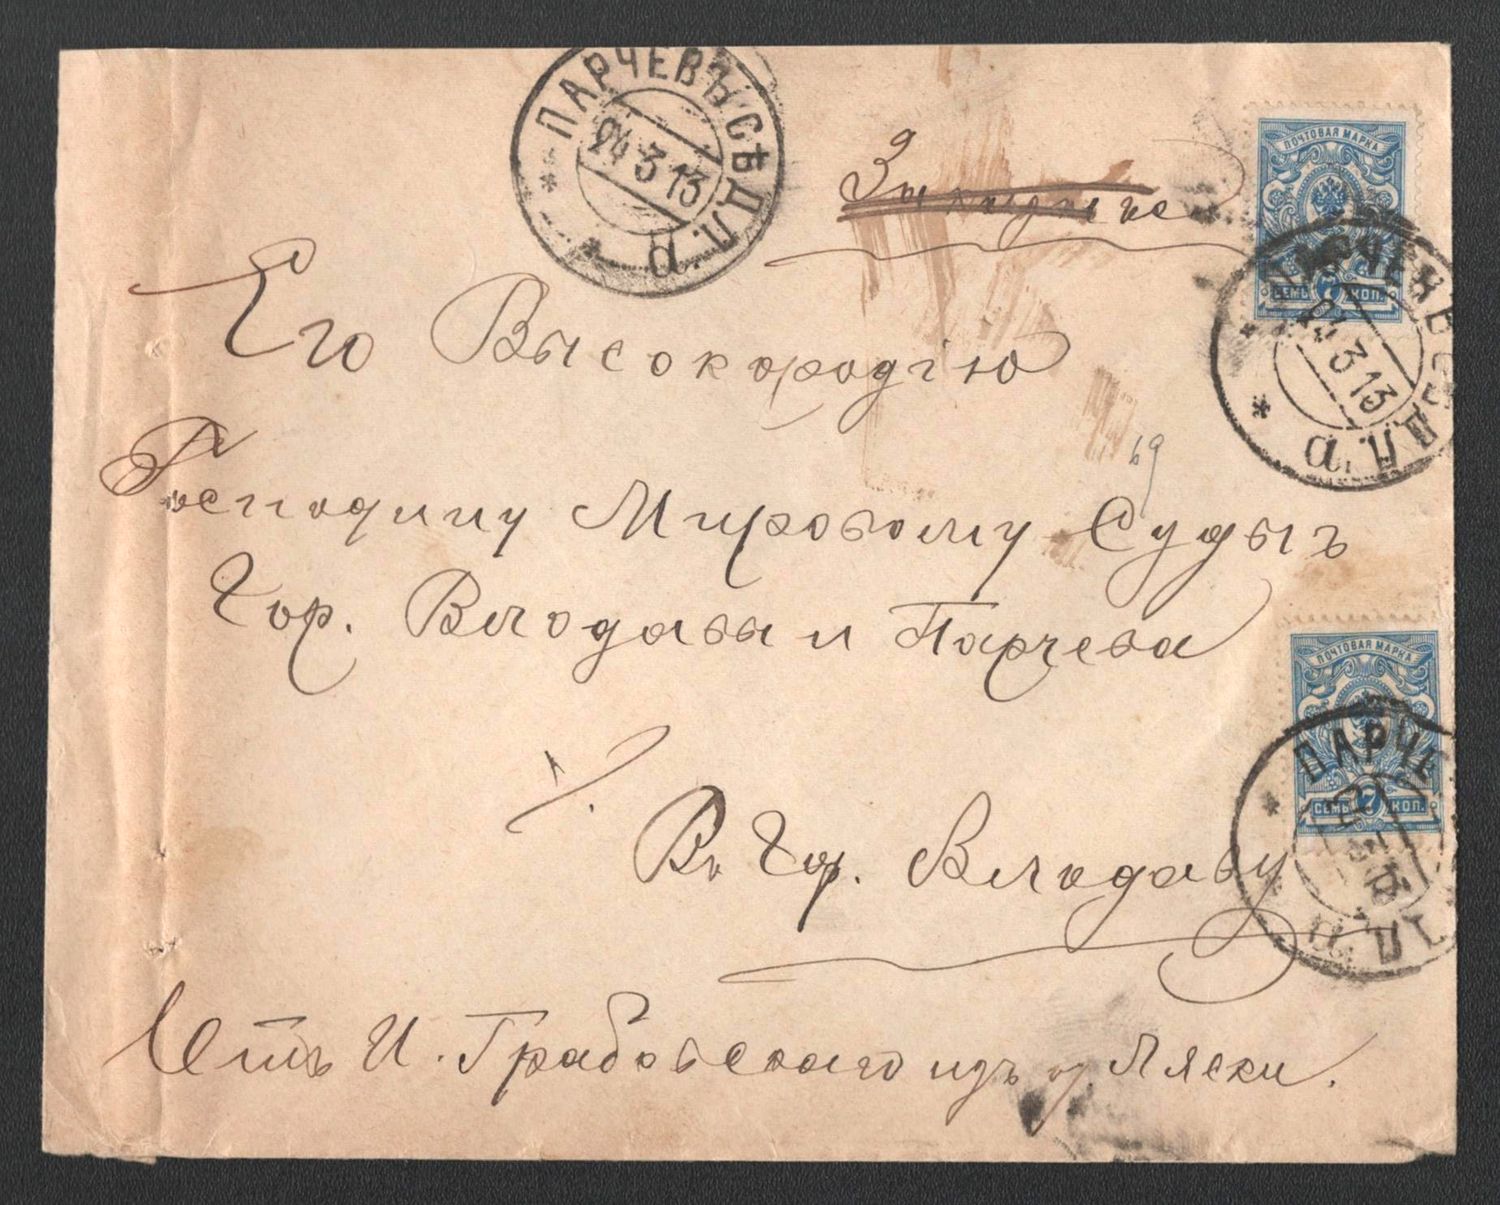 ПАРЧЕВЪ СѢДЛ. а
24 3 13
Заказное
ПОЧТОВАЯ МАРКА
СЕМЬ 7 КОП.
24 3 13
Его Высокородію
69
Господину Мировому Судьѣ
Гор. Влодавы и Парчева
Въ Гор. Влодаву
ПОЧТОВАЯ МАРКА
СЕМЬ 7 КОП.
Отъ И. Грабовскаго изъ Ляски.